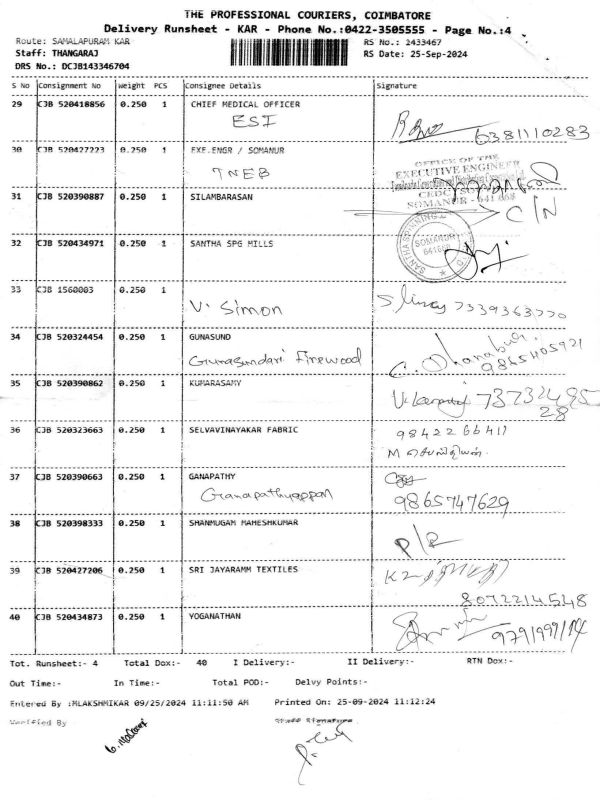 THE PROFESSIONAL COURIERS, COIMBATORE
Delivery Runsheet - KAR - Phone No.:0422-3505555 - Page No.:4
Route: SAMALAPURAM KAR RS No.: 2433467
Staff: THANGARAJ RS Date: 25-Sep-2024
DRS No.: DCJB143346704
S No Consignment No Weight PCS Consignee Details Signature
29 CJB 520418856 0.250 1 CHIEF MEDICAL OFFICER
ESI 6381110283
30 CJB 520427223 0.250 1 EXE.ENGR / SOMANUR
TNEB
OFFICE OF THE
EXECUTIVE ENGINEER
SOMANUR - 641 668
31 CJB 520390887 0.250 1 SILAMBARASAN
C/N
32 CJB 520434971 0.250 1 SANTHA SPG MILLS
SANTHA SPINNING
SOMANUR
641668
33 CJB 1560003 0.250 1
V. Simon 7339363770
34 CJB 520324454 0.250 1 GUNASUND
Gunasundari Firewood
C. Dhanabal
9865405921
35 CJB 520390862 0.250 1 KUMARASAMY
73732495
28
36 CJB 520323663 0.250 1 SELVAVINAYAKAR FABRIC
9842266411
37 CJB 520390663 0.250 1 GANAPATHY
Ganapathyappan
9865747629
38 CJB 520398333 0.250 1 SHANMUGAM MAHESHKUMAR
P/R
39 CJB 520427206 0.250 1 SRI JAYARAMM TEXTILES
8072214548
40 CJB 520434873 0.250 1 YOGANATHAN
Tot. Runsheet:- 4 Total Dox:- 40 I Delivery:- II Delivery:- RTN Dox:-
Out Time:- In Time:- Total POD:- Delvy Points:-
Entered By :MLAKSHMIKAR 09/25/2024 11:11:50 AM Printed On: 25-09-2024 11:12:24
Verified By Staff Signature